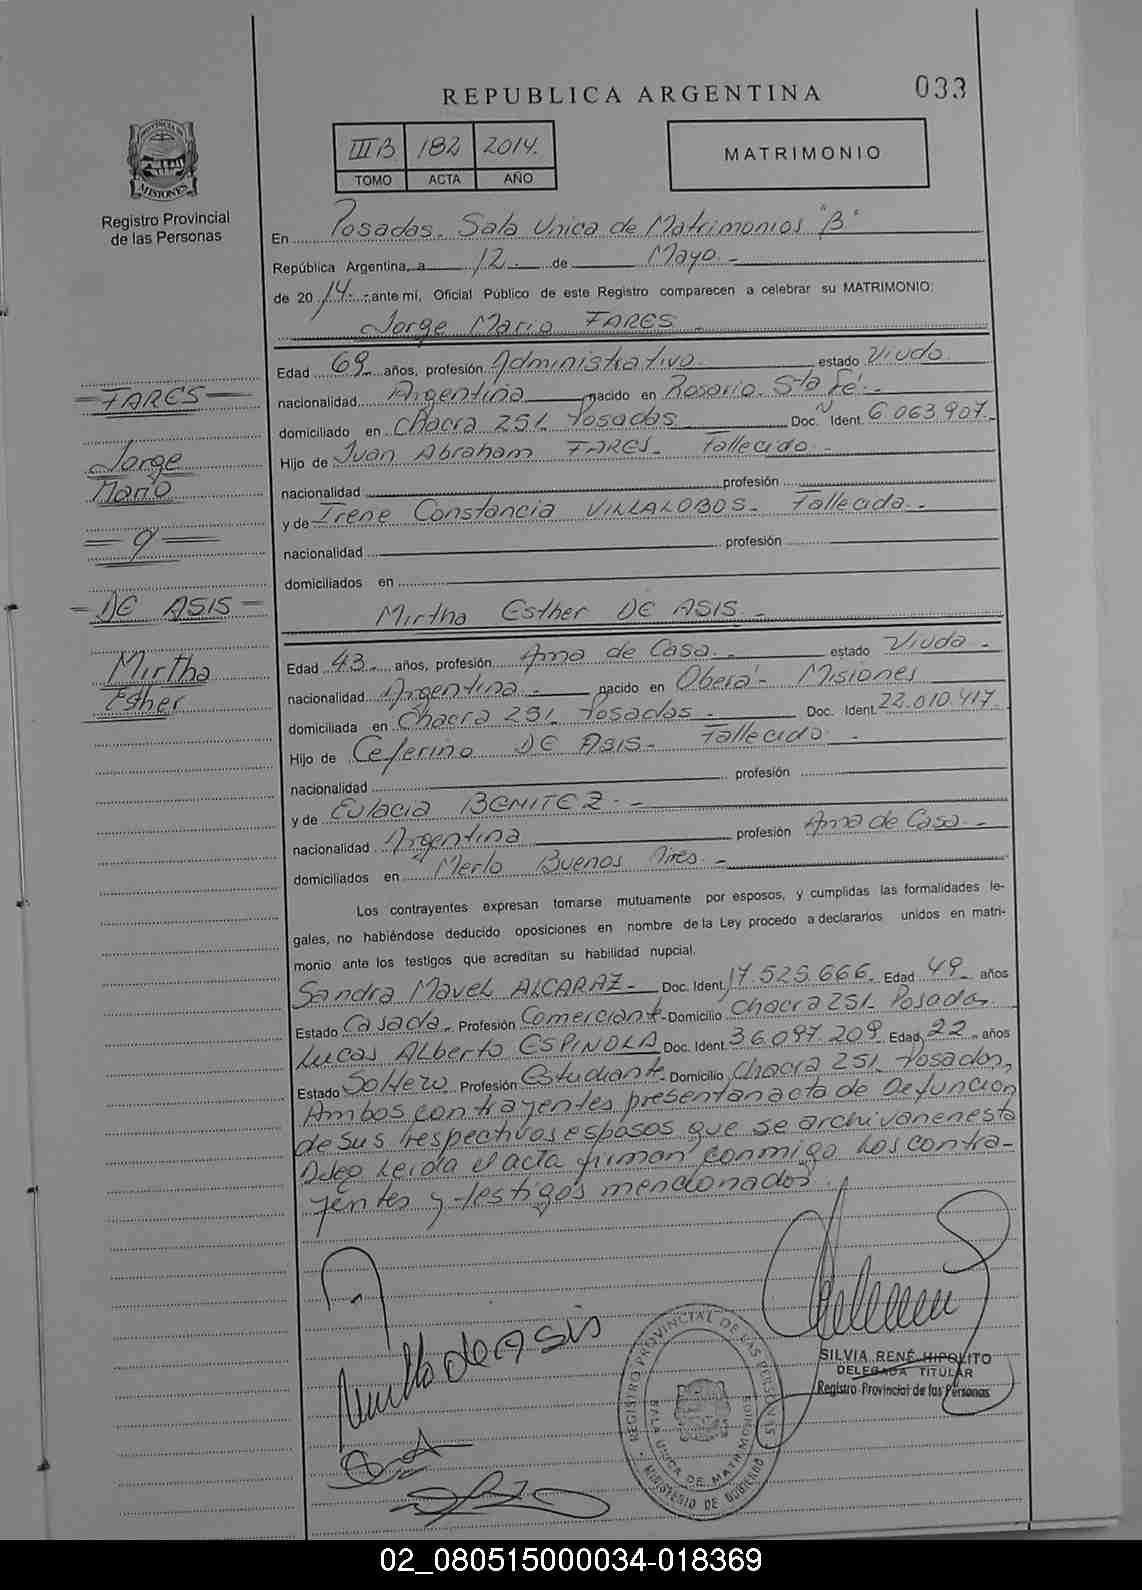 REPUBLICA ARGENTINA
033
PROVINCIA DE
MISIONES
Registro Provincial
de las Personas
III B 182 2014.
TOMO ACTA AÑO
MATRIMONIO
En Posadas. Sala Unica de Matrimonios "B"
República Argentina, a 12.- de Mayo.-
de 20 14.- ante mí, Oficial Público de este Registro comparecen a celebrar su MATRIMONIO:
Jorge Mario FARES.-
Edad 69 años, profesión Administrativo estado Viudo
nacionalidad Argentina nacido en Rosario. Sta Fé.-
domiciliado en Chacra 251. Posadas Doc. Ident. 6.063.907.-
Hijo de Juan Abraham FARES. Fallecido.-
nacionalidad profesión
y de Irene Constancia VILLALOBOS. Fallecida.-
nacionalidad profesión
domiciliados en
FARES
Jorge
Mario
y
DE ASIS
Mirtha
Esther
Mirtha Esther DE ASIS.-
Edad 43 años, profesión Ama de Casa.- estado Viuda.-
nacionalidad Argentina.- nacido en Oberá - Misiones
domiciliada en Chacra 251. Posadas.- Doc. Ident. 22.010.417.
Hijo de Ceferino DE ASIS. Fallecido.-
nacionalidad profesión
y de Eulacia BENITEZ.-
nacionalidad Argentina profesión Ama de Casa.-
domiciliados en Merlo Buenos Aires.-
Los contrayentes expresan tomarse mutuamente por esposos, y cumplidas las formalidades le-
gales, no habiéndose deducido oposiciones en nombre de la Ley procedo a declararlos unidos en matri-
monio ante los testigos que acreditan su habilidad nupcial.
Sandra Mavel ALCARAZ.- Doc. Ident. 17.525.666. Edad 49 años
Estado Casada. Profesión Comerciante. Domicilio Chacra 251. Posadas.
Lucas Alberto ESPINOLA Doc. Ident. 36.097.209 Edad 22 años
Estado Soltero. Profesión Estudiante. Domicilio Chacra 251. Posadas,
Ambos contrayentes presentan acta de Defunción
de sus respectivos esposos que se archivan en esta
Deleg Leida el acta firman conmigo los contra-
yentes y testigos mencionados.
Mirtha de Asis
SILVIA RENÉ HIPOLITO
DELEGADA TITULAR
Registro Provincial de las Personas
REGISTRO PROVINCIAL DE LAS PERSONAS
SALA UNICA DE MATRIMONIOS
MINISTERIO DE GOBIERNO
02_080515000034-018369